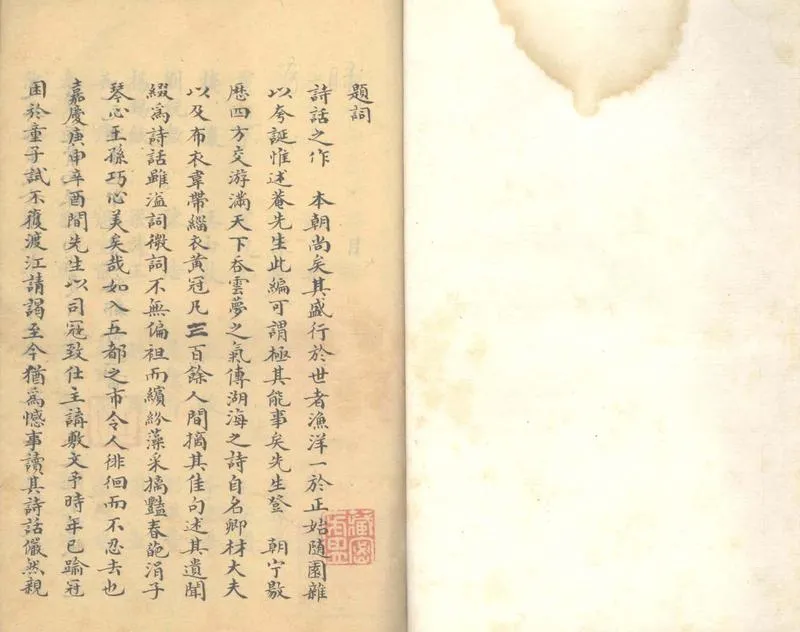 題詞
詩話之作　本朝尚矣其盛行於世者漁洋一於正始隨園雜
以夸誕惟述菴先生此編可謂極其能事矣先生登　朝宁敭
歷四方交游滿天下吞雲夢之氣傳湖海之詩自名卿材大夫
以及布衣韋帶緇衣黃冠凡三百餘人間摘其佳句述其遺聞
綴為詩話雖溢詞微詞不無偏袒而繽紛藻采摛豔春葩涓子
琴心王孫巧心美矣哉如入五都之市令人徘徊而不忍去也
嘉慶庚申辛酉間先生以司寇致仕主講敷文予時年已踰冠
困於童子試不獲渡江請謁至今猶為憾事讀其詩話儼然親